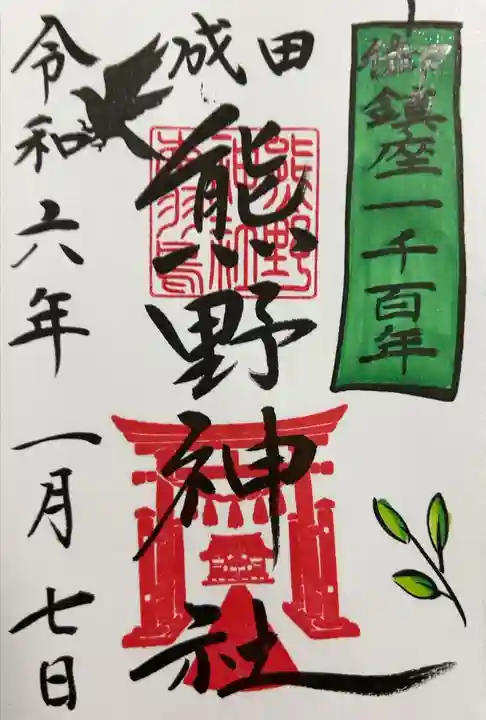 御鎮座一千百年
成田
熊野神社
令和六年一月七日